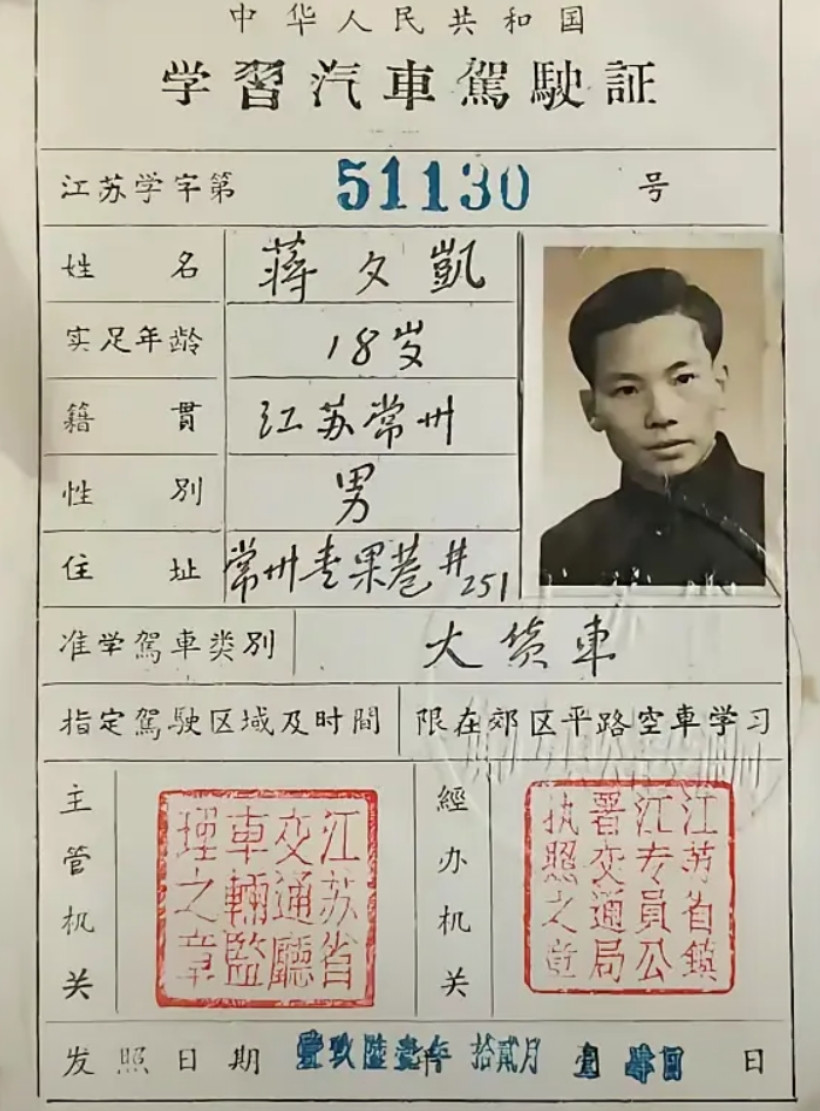 中华人民共和国
学習汽車駕駛証
江苏学字第 51130 号
姓名 蒋夕凱
实足年龄 18岁
籍貫 江苏常州
性别 男
住址 常州青果巷#251
准学駕車类别 大货車
指定駕駛区域及时間 限在郊区平路空車学习
主管机关
江苏省
交通廳
車輛監
理之章
經办机关
江苏省鎮
江专員公
署交通局
执照之章
发照日期 壹玖陸壹年 拾貳月 日